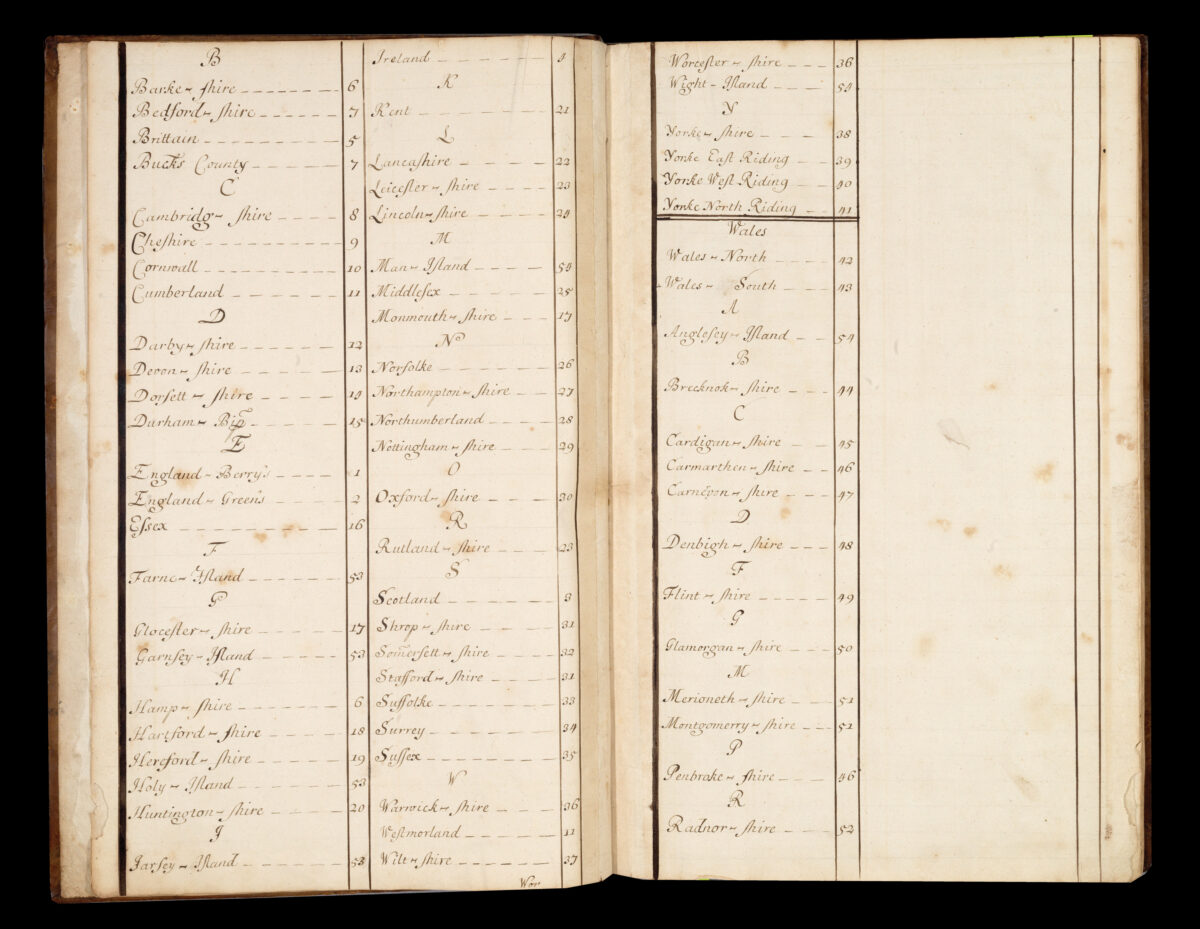 B
Barke-shire 6
Bedford-shire 7
Brittain 5
Bucks County 7
C
Cambridg-shire 8
Cheshire 9
Cornwall 10
Cumberland 11
D
Darby-shire 12
Devon-shire 13
Dorsett-shire 14
Darham-Bip 15
E
England-Berry's 1
England-Green's 2
Essex 16
F
Farne-Island 53
G
Glocester-shire 17
Garnsey-Island 53
H
Hamp-shire 6
Hartford-shire 18
Hereford-shire 19
Holy-Island 53
Huntington-shire 20
J
Jarsey-Island 53
Ireland 4
K
Kent 21
L
Lancashire 22
Leicester-shire 23
Lincoln-shire 24
M
Man-Island 54
Middlesex 25
Monmouth-shire 17
N
Norfolke 26
Northampton-shire 27
Northumberland 28
Nottingham-shire 29
O
Oxford-shire 30
R
Rutland-shire 23
S
Scotland 3
Shrop-shire 31
Somersett-shire 32
Stafford-shire 31
Suffolke 33
Surrey 34
Sussex 35
W
Warwick-shire 36
Westmorland 11
Wilt-shire 37
Wor
Worcester-shire 36
Wight-Island 54
Y
Yorke-shire 38
Yorke East Riding 39
Yorke West Riding 40
Yorke North Riding 41
Wales
Wales-North 42
Wales-South 43
A
Anglesey-Island 54
B
Brecknok-shire 44
C
Cardigan-shire 45
Carmarthen-shire 46
Carnevon-shire 47
D
Denbigh-shire 48
F
Flint-shire 49
G
Glamorgan-shire 50
M
Merioneth-shire 51
Montgomerry-shire 51
P
Penbrake-shire 46
R
Radnor-shire 52